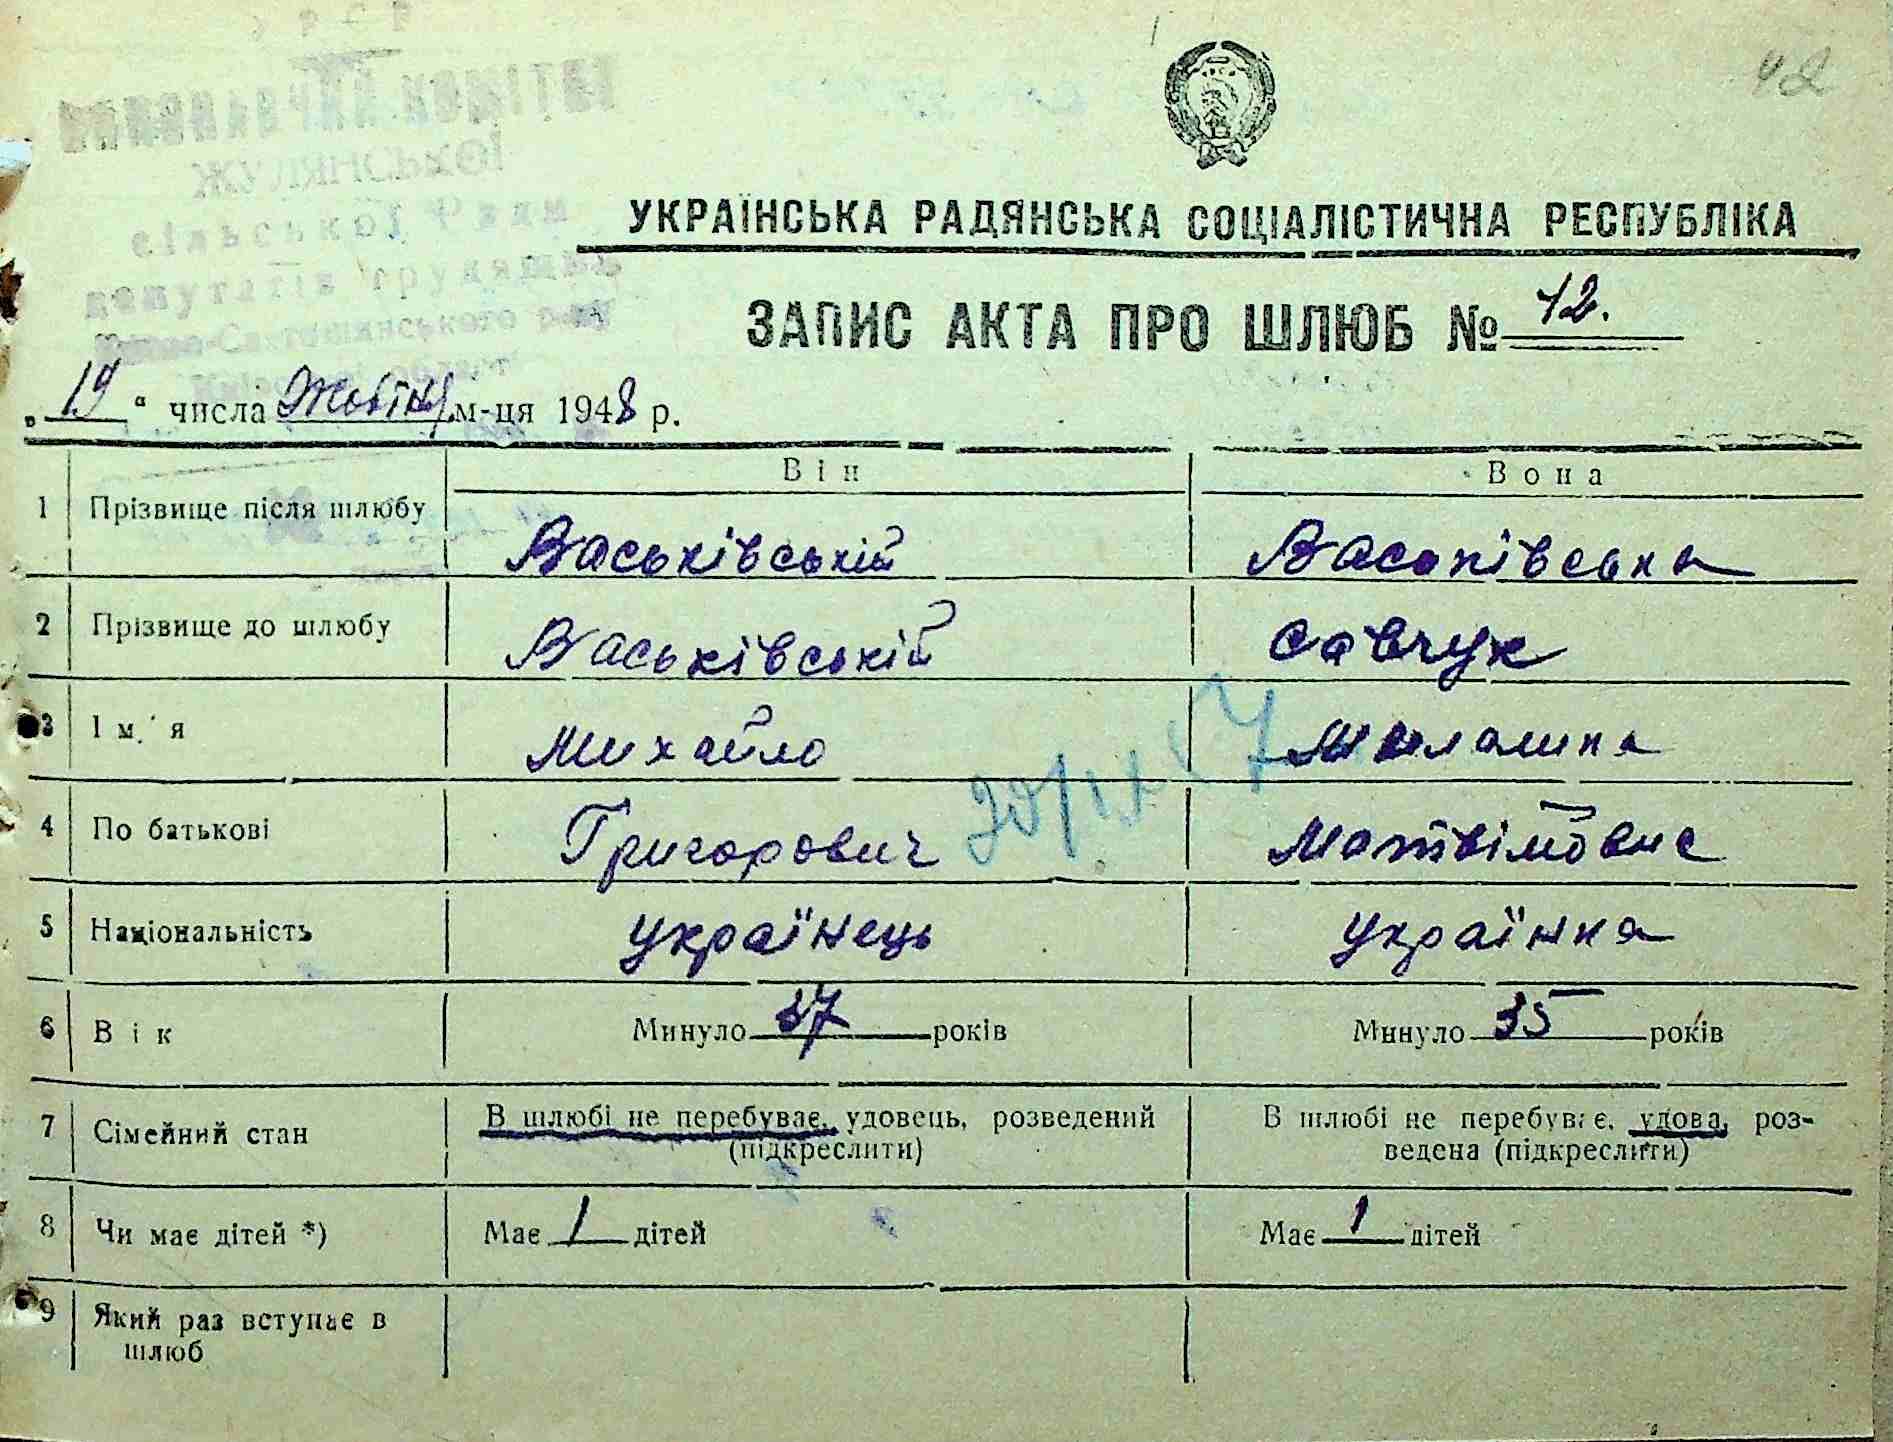 42
виконавчий комітет
ЖУЛЯНСЬКОЇ
сільської Ради
депутатів трудящих
Києво-Святошинського р-ну
Київської області
УКРАЇНСЬКА РАДЯНСЬКА СОЦІАЛІСТИЧНА РЕСПУБЛІКА
ЗАПИС АКТА ПРО ШЛЮБ № 42.
„19“ числа Жовтня м-ця 1948 р.
Він Вона
1 Прізвище після шлюбу Васьківський Васьківська
2 Прізвище до шлюбу Васьківський Савчук
3 Ім'я Михайло Миланина
4 По батькові Григорович Матвіївна
5 Національність українець українка
6 Вік Минуло 37 років Минуло 35 років
7 Сімейний стан В шлюбі не перебуває, удовець, розведений (підкреслити) В шлюбі не перебуває, удова, розведена (підкреслити)
8 Чи має дітей *) Має 1 дітей Має 1 дітей
9 Який раз вступає в шлюб